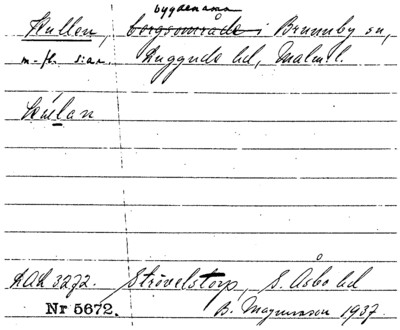 bygdenamn
Kullen, bergsområde i Brunnby sn,
m. fl. s:ar. Luggude hd, Malm. l.
Kúlan
LAL 3272. Strövelstorp, S. Åsbo hd
Nr 5672. B. Magnusson 1937.